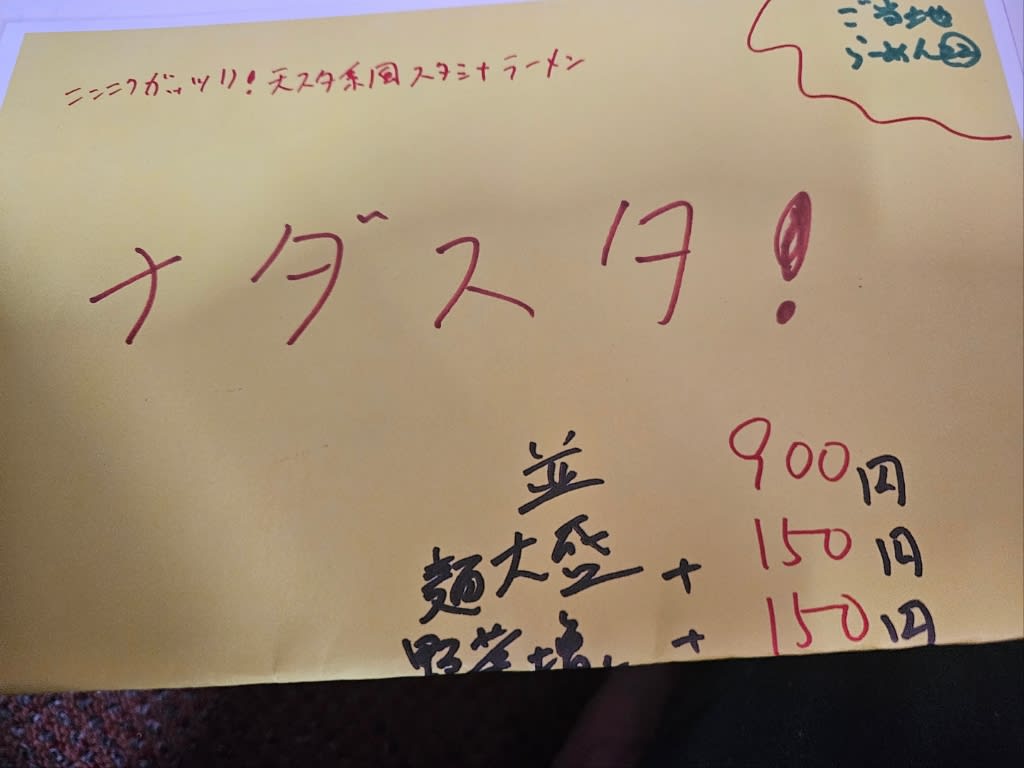 ご当地
らーめん㉒
ニンニクガッツリ!天スタ系風スタミナラーメン
ナダスタ!
並 900円
麺大盛 + 150円
野菜増し + 150円